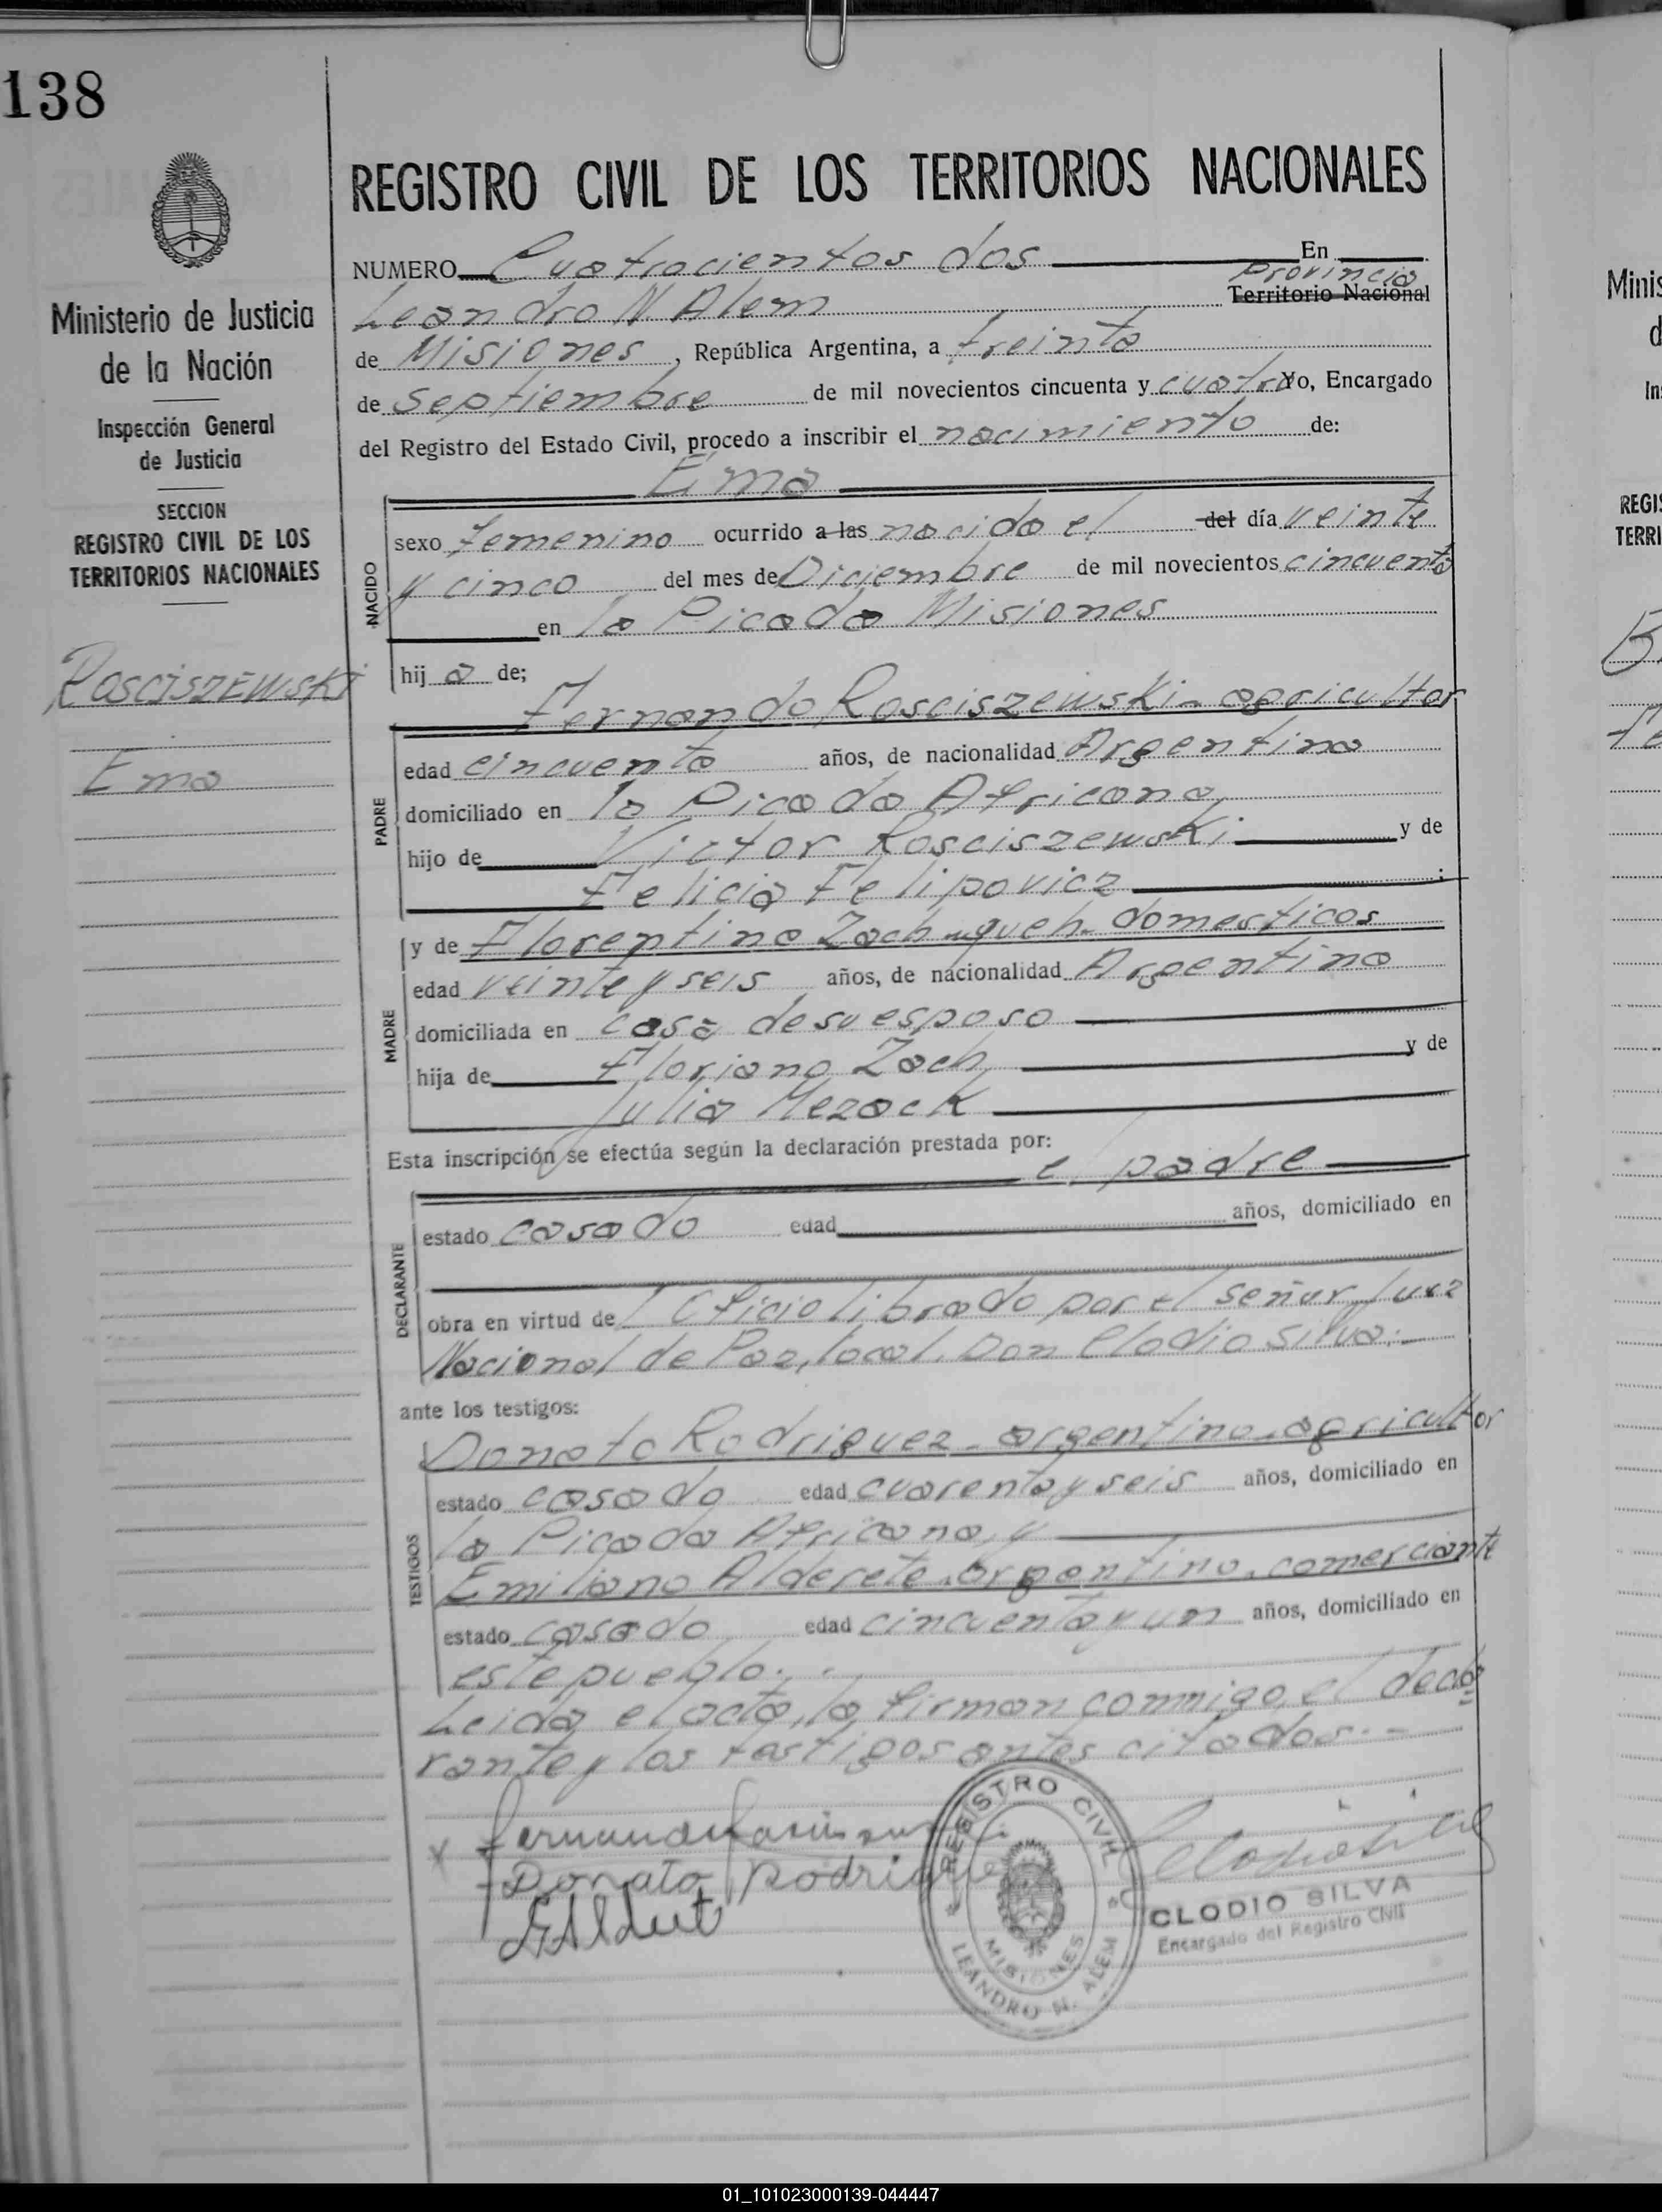 138
REGISTRO CIVIL DE LOS TERRITORIOS NACIONALES
NUMERO Cuatrocientos dos En
Leandro N. Alem Provincia Territorio Nacional
de Misiones, República Argentina, a treinta
de Septiembre de mil novecientos cincuenta y cuatro Yo, Encargado
del Registro del Estado Civil, procedo a inscribir el nacimiento de:
Ema
NACIDO
sexo femenino ocurrido a las nacida el del día veinte
y cinco del mes de Diciembre de mil novecientos cincuenta
en la Picada Misiones
hij a de;
Fernando Rosciszewski - agricultor
PADRE
edad cincuenta años, de nacionalidad Argentina
domiciliado en la Picada Africana,
hijo de Victor Rosciszewski y de
Felicia Felipovicz
MADRE
y de Florentina Zach - queh. domesticos
edad veinte y seis años, de nacionalidad Argentina
domiciliada en casa de su esposo
hija de Floriano Zach y de
Julia Mezack
Esta inscripción se efectúa según la declaración prestada por:
el padre
DECLARANTE
estado casado edad años, domiciliado en
obra en virtud de Oficio librado por el señor Juez
Nacional de Paz, local, Don Clodio Silva.-
ante los testigos:
TESTIGOS
Donato Rodriguez - argentino - agricultor
estado casado edad cuarenta y seis años, domiciliado en
la Picada Africana, y
Emiliano Alderete - argentino - comerciante
estado casado edad cincuenta y un años, domiciliado en
este pueblo.
Leida el acta, la firman conmigo, el decla
rante y los testigos antes citados.-
Donato Rodrigue
REGISTRO CIVIL
MISIONES
LEANDRO N. ALEM
CLODIO SILVA
Encargado del Registro Civil
Ministerio de Justicia
de la Nación
Inspección General
de Justicia
SECCION
REGISTRO CIVIL DE LOS
TERRITORIOS NACIONALES
ROSCISZEWSKI
Ema
Minis
d
In
REGIS
TERRI
01_101023000139-044447